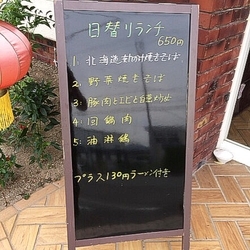 日替りランチ
650円
1: 北海道あんかけ焼きそば
2: 野菜焼きそば
3: 豚肉とエビと白菜
4: 回鍋肉
5: 油淋鶏
プラス130円ラーメン付き